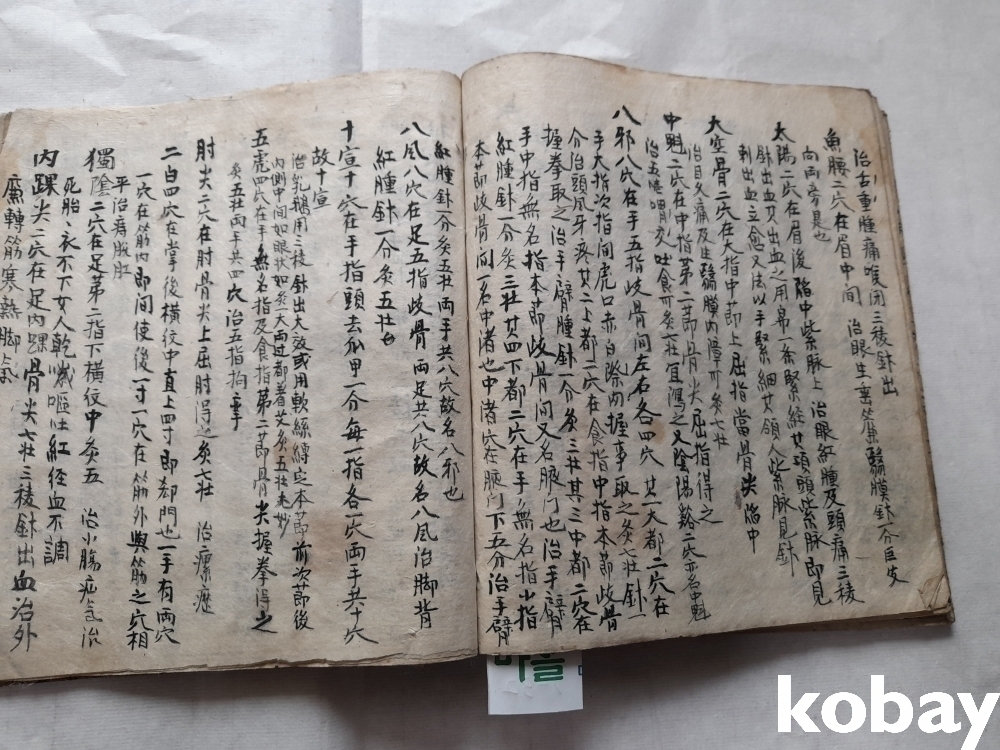 治舌重腫痛喉閉三稜針出
魚腰二穴在眉中間 治眼生垂簾翳膜針一分巨皮
向両旁是也
太陽二穴在眉後陷中紫脉上 治眼紅腫及頭痛三稜
針出血其出血之用帛一条緊緾其頭頭紫脉即見
刺出血立愈又法以手緊細其領人紫脉見針
大空骨二穴在大指中莭上屈指當骨尖陷中
治目久痛及生翳膜内障可灸七壮
中魁二穴在中指第二莭骨尖屈指得之
治五噎 吐食可灸一壮宜瀉之又陰陽谿二穴亦名中魁
八邪八穴在手五指歧骨間左右各四穴 其一大都二穴在
手大指次指間虎口赤白際内握拳取之灸七壮針一
分治頭風牙疼其二上都二穴在食指中指本莭歧骨
握拳取之治手臂腫針一分灸三壮其三中都二穴在
手中指無名指本莭歧骨間又名腋門也治手臂
紅腫針一分灸三壮其四下都二穴在手無名指小指
本莭歧骨間一名中渚也中渚穴在腋門下五分治手臂
紅腫針一分灸五壮両手共八穴故名八邪也
八風八穴在足五指歧骨両足共八穴故名八風治脚背
紅腫針一分灸五壮
十宣十穴在手指頭去爪甲一分每一指各一穴両手共十穴
故十宣
治乳鵝用三稜針出大效或用軟絲縛定本莭前次莭後
内側中間如眼状如灸一大両过都著艾灸五壮尤妙
五虎四穴在手無名指及食指第二莭骨尖握拳得之
灸五壮両手共四穴治五指拘
肘尖二穴在肘骨尖上屈肘得之灸七壮 治瘰癧
二白四穴在掌後横紋中直上四寸即郄門也一手有両穴
一穴在筋内即間使後一寸一穴在筋外與筋之穴相
平治痔脱肛
獨陰二穴在足第二指下横紋中灸五 治小腸疝气治
死胎衣不下女人乾噦嘔吐紅経血不調
内踝尖二穴在足内踝骨尖七壮三稜針出血治外
廉轉筋寒熱脚氣
kobay